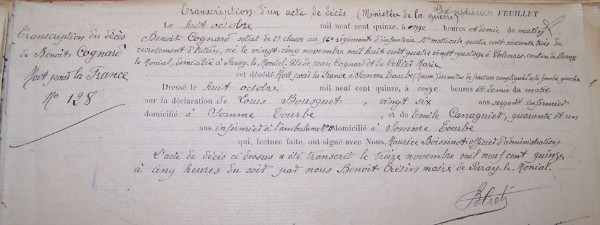 Transcription d'un acte de décès (Ministère de la guerre) FEUILLET
Le huit octobre mil neuf cent quinze, à onze heures et demie du matin
Benoît Cognard soldat de 2e classe au 56e régiment d'infanterie No matricule quatre cent soixante trois du
recrutement d'Autun, né le vingt cinq novembre mil huit cent quatre vingt quatorze à Volesvres, canton de Paray
le Monial, domicilié à Paray le Monial, fils de Jean Cognard et de Marie
est décédé Mort pour la France à Somme Tourbe (Marne) des suites de fracture compliquée de la jambe gauche
Dressé le huit octobre mil neuf cent quinze, à onze heures et demie du matin
sur la déclaration de Louis Bousquet, vingt six ans, sergent infirmier
domicilié à Somme Tourbe, et de Emile Canaguier, quarante et un
ans, infirmier à l'ambulance domicilié à Somme Tourbe
qui, lecture faite, ont signé avec Nous Maurice Boissinot officier d'administration
L'acte de décès ci dessus a été transcrit le treize novembre mil neuf cent quinze
à cinq heures du soir par nous Benoît Crétin maire de Paray le Monial.
BCrétin
Transcription du décès
de Benoît Cognard
Mort pour la France
No 128